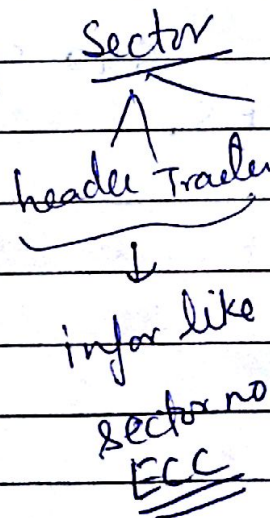 Sector
header Trailer
infor like
sector no
ECC